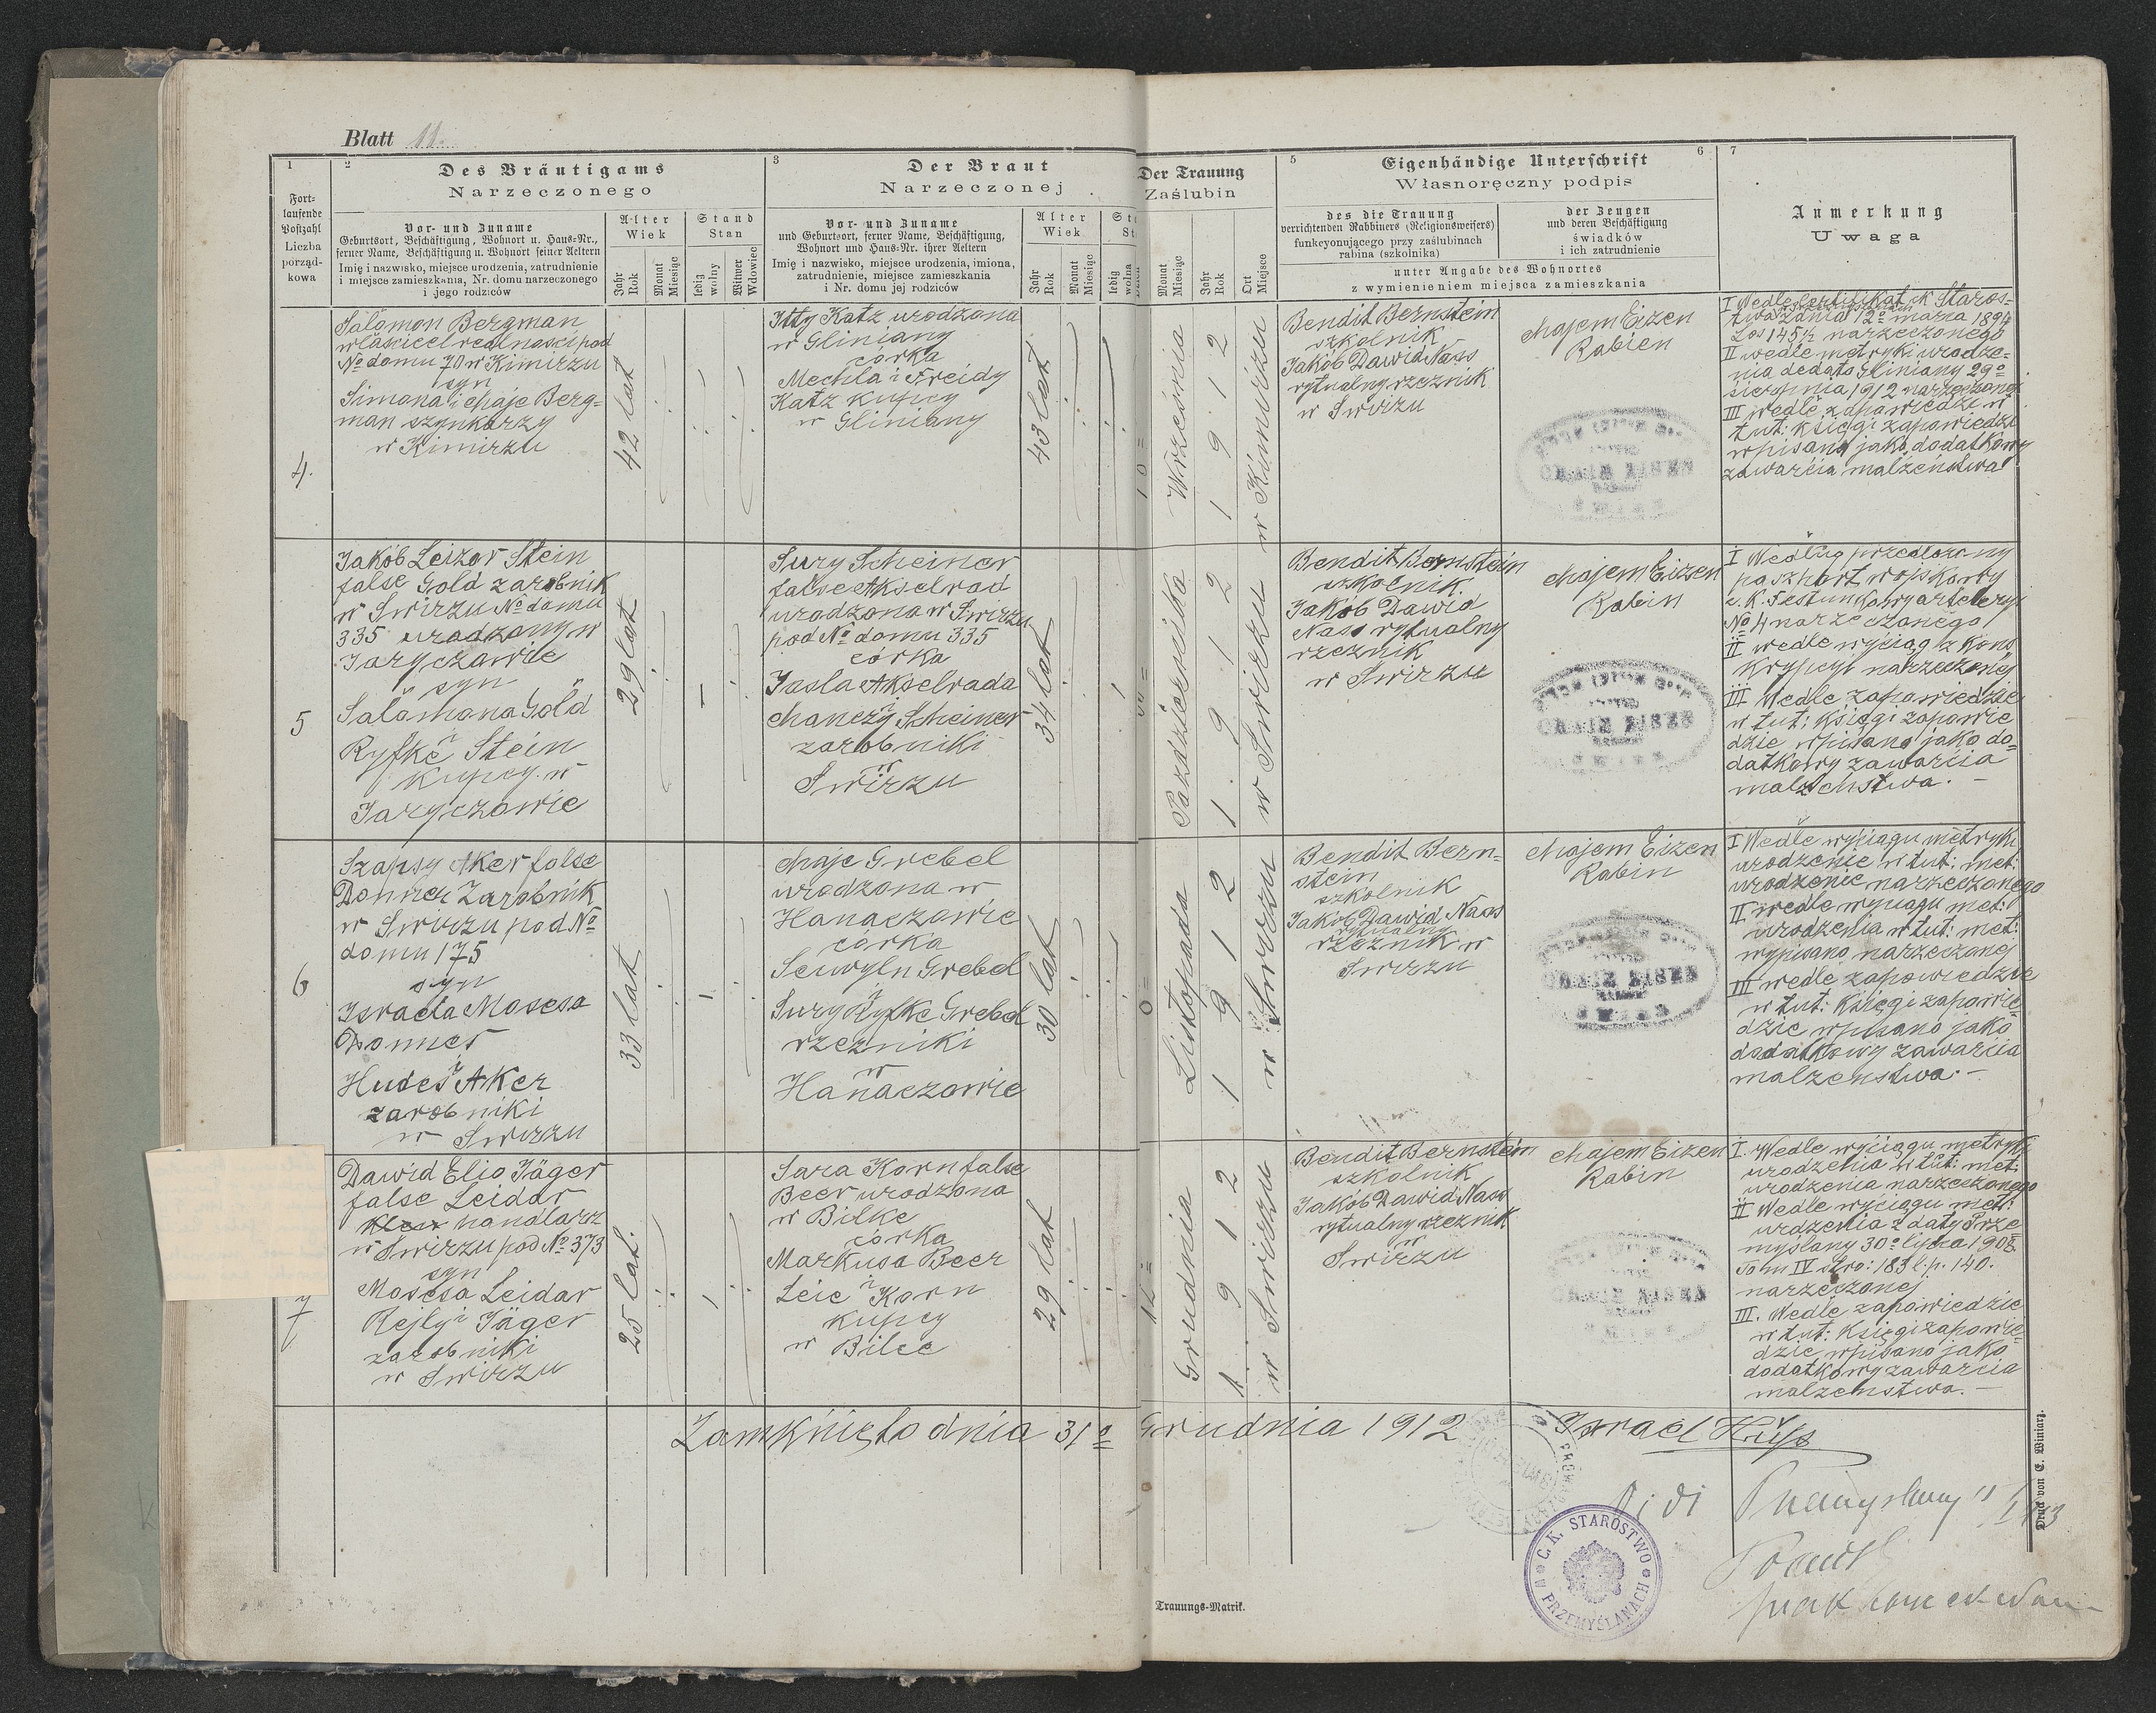 Blatt 11.
1
Fort-
laufende
Postzahl
Liczba
porząd-
kowa
2
Des Bräutigams
Narzeczonego
Vor- und Zuname
Geburtsort, Beschäftigung, Wohnort u. Haus-Nr.,
ferner Name, Beschäftigung u. Wohnort seiner Aeltern
Imię i nazwisko, miejsce urodzenia, zatrudnienie
i miejsce zamieszkania, Nr. domu narzeczonego
i jego rodziców
Alter
Wiek
Jahr
Rok
Monat
Miesiąc
Stand
Stan
ledig
wolny
Witwer
Wdowiec
3
Der Braut
Narzeczonej
Vor- und Zuname
und Geburtsort, ferner Name, Beschäftigung,
Wohnort und Haus-Nr. ihrer Aeltern
Imię i nazwisko, miejsce urodzenia, imiona,
zatrudnienie, miejsce zamieszkania
i Nr. domu jej rodziców
Alter
Wiek
Jahr
Rok
Monat
Miesiąc
ledig
wolna
Der Trauung
Zaślubin
Monat
Miesiąc
Jahr
Rok
Ort
Miejsce
5
Eigenhändige Unterschrift
Własnoręczny podpis
6
des die Trauung
verrichtenden Rabbiners (Religionsweisers)
funkcyonującego przy zaślubinach
rabina (szkolnika)
der Zeugen
und deren Beschäftigung
świadków
i ich zatrudnienie
unter Angabe des Wohnortes
z wymienieniem miejsca zamieszkania
7
Anmerkung
Uwaga
4.
Salomon Bergman
wlasciciel realnosci pod
No domu 70 w Kimirzu
syn
Simona i Chaje Berg-
man szynkarzy
w Kimirzu
42 lat
Itty Katz urodzona
w Gliniany
córka
Mechla i Freidy
Katz kupcy
w Gliniany
43 lat
10
Wrzesmia
1912
w Kimirzu
Bendit Bernstein
szkolnik
Jakób Dawid Nass
rytualny rzeznik
w Swirzu
Chajem Eizen
Rabien
I Wedle certifikat ck Staros-
twa
dania 12o marza 1894
Los 145½ narzeczonego
II wedle metryki urodze-
nia dedato Gliniany 29o
sierpnia 1912 narzeczonej
III wedle zapowiedzi w
tut: księgi zapowiedzi
wpisany jako dodatkowy
zawarcia malżeństwa
5
Jakób Leizor Stein
false Gold zarobnik
w Swirzu No domu
335 urodzony w
Jaryczowie
syn
Salamona Gold
i
Ryfke Stein
kupcy w
Jaryczowie
29 lat
1
Sury Scheiner
false Akselrad
urodzona w Swirzu
pod No domu 335
córka
Jasla Akselrada
i
Chanczy Scheiner
zarobniki
w
Swirzu
34 lat
1
Pazdziernika
1912
w Swirzu
Bendit Bernstein
szkolnik.
Jakób Dawid
Nass rytualny
rzeznik
w Swirzu
Chajem Eizen
Rabin
I Według przedlozony
paszport wojskowy
c. K. Festunkowy artelery
No 4 narzeczonego
II wedle wyciąg z Kons
krypcyi narzeczonej
III Wedle zapowiedzie
w tut: księgi zapowie
dzie wpisano jako do=
datkowy zawarcia
malzenstwa. —
6
Szapsy Aker false
Donner Zarobnik
w Swirzu pod No
domu 175
syn
Israela Mosesa
Donner
i
Hudes Aker
zarobniki
w Swirzu
33 lat
1
Chaje Grebel
urodzona w
Hanaczowie
córka
Grebel
i
Sury Ryfke Grebel
rzezniki
w
Hanaczowie
30 lat
1
Listopada
1912
w Swirzu
Bendit Bern=
stein
szkolnik
Jakób Dawid Nass
rytualny
rzeznik w
Swirzu
Chajem Eizen
Rabin
I Wedle wyciągu metryki
urodzenie w tut: met:
urodzenie narzeczonego
II wedle wyciągu met:
urodzenia w tut: met:
wypisano narzeczonej
III wedle zapowiedzie
w tut: księgi zapowie-
dzie wpisano jako
dodatkowy zawarcia
malzenstwa. —
7
Dawid Elio Jäger
false Leidar
handlarz
w Swirzu pod No 373
syn
Mosesa Leidar
Rejly i Jäger
zarobniki
w Swirzu
25 lat.
1
Sara Korn false
Beer urodzona
w Bilke
córka
Markusa Beer
i
Leie Korn
kupcy
w Bilce
29 lat
Grudnia
1912
w Swirzu
Bendit Bernstein
szkolnik
Jakób Dawid Nass
rytualny rzeznik
w
Swirzu
Chajem Eizen
Rabin
I. Wedle wyciągu metryki
urodzenia w tut: met:
urodzenia narzeczonego
II Wedle wyciągu met:
urdzenia z daty Prze
myslany 30o lipca 1908.
Tom IV stro: 183 l.p. 140.
narzeczonej
III. Wedle zapowiedzie
w tut: księgi zapowie=
dzie wpisano jako
dodatkowy zawarcia
malzenstwa. —
Zamknięto dnia 31o Grudnia 1912
Israel
C. K. STAROSTWO
W PRZEMYŚLANACH
Trauungs-Matrik.
Druck von E. Winiarz.